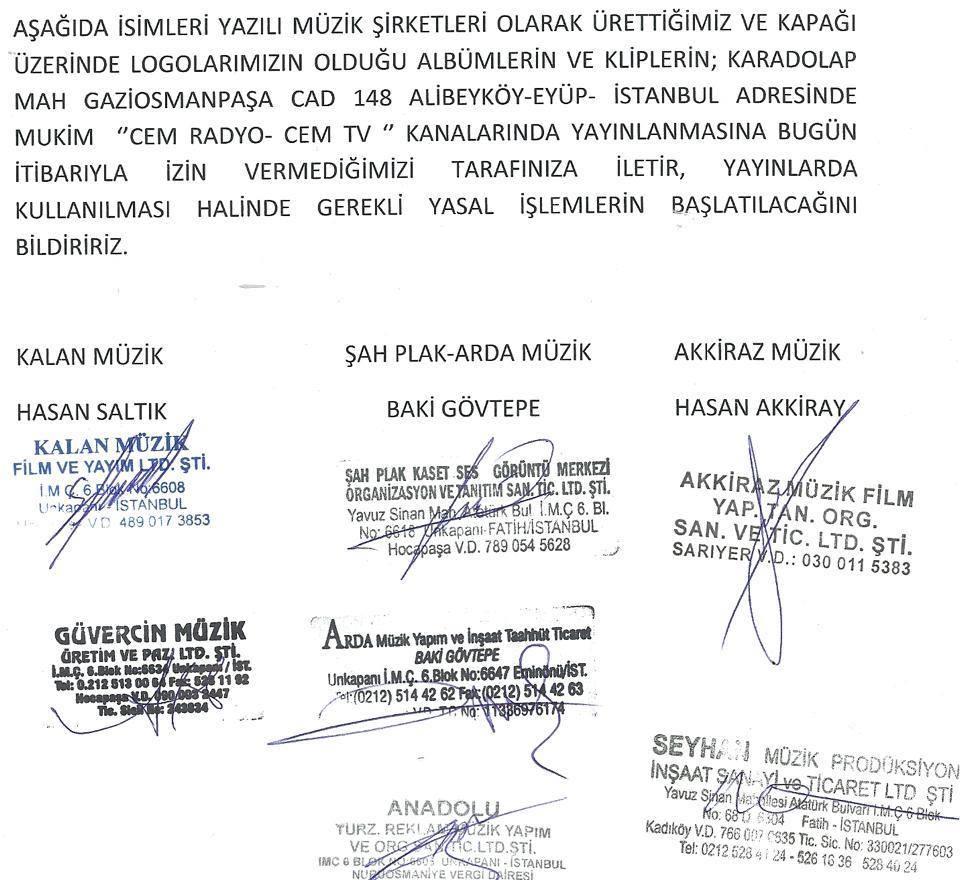 AŞAĞIDA İSİMLERİ YAZILI MÜZİK ŞİRKETLERİ OLARAK ÜRETTİĞİMİZ VE KAPAĞI
ÜZERİNDE LOGOLARIMIZIN OLDUĞU ALBÜMLERİN VE KLİPLERİN; KARADOLAP
MAH GAZİOSMANPAŞA CAD 148 ALİBEYKÖY-EYÜP- İSTANBUL ADRESİNDE
MUKİM ‘’CEM RADYO- CEM TV ‘’ KANALARINDA YAYINLANMASINA BUGÜN
İTİBARIYLA İZİN VERMEDİĞİMİZİ TARAFINIZA İLETİR, YAYINLARDA
KULLANILMASI HALİNDE GEREKLİ YASAL İŞLEMLERİN BAŞLATILACAĞINI
BİLDİRİRİZ.
KALAN MÜZİK ŞAH PLAK-ARDA MÜZİK AKKİRAZ MÜZİK
HASAN SALTIK BAKİ GÖVTEPE HASAN AKKİRAY
KALAN MÜZİK
FİLM VE YAYIM LTD. ŞTİ.
İ.M.Ç. 6.Blok No:6608
Unkapanı - İSTANBUL
V.D. 489 017 3853
ŞAH PLAK KASET SES GÖRÜNTÜ MERKEZİ
ORGANİZASYON VE TANITIM SAN. TİC. LTD. ŞTİ.
Yavuz Sinan Mah. Atatürk Bul. İ.M.Ç 6. Bl.
No: 6618 Unkapanı-FATİH/İSTANBUL
Hocapaşa V.D. 789 054 5628
AKKİRAZ MÜZİK FİLM
YAP. TAN. ORG.
SAN. VE TİC. LTD. ŞTİ.
SARIYER V.D.: 030 011 5383
GÜVERCİN MÜZİK
ÜRETİM VE PAZ. LTD. ŞTİ.
İ.M.Ç. 6.Blok No:6634 Unkapanı / İST.
Tel: 0.212 513 00 64 Fax: 528 11 92
Hocapaşa V.D.
Tic. Sicil No: 243834
ARDA Müzik Yapım ve İnşaat Taahhüt Ticaret
BAKİ GÖVTEPE
Unkapanı İ.M.Ç. 6.Blok No:6647 Eminönü/İST.
Tel:(0212) 514 42 62 Fax:(0212) 514 42 63
V.D. T.C. No: 11386976174
SEYHAN MÜZİK PRODÜKSİYON
İNŞAAT SANAYİ ve TİCARET LTD ŞTİ
Yavuz Sinan Mahallesi Atatürk Bulvarı İ.M.Ç 6 Blok
No: 68 D. 6304 Fatih - İSTANBUL
Kadıköy V.D. 766 Tic. Sic. No: 330021/277603
Tel: 0212 528 41 24 - 526 16 36 528 40 24
ANADOLU
TURZ. REKLAM MÜZİK YAPIM
VE ORG SAN.TİC.LTD.ŞTİ.
IMC 6 BLOK NO:6603 UNKAPANI - İSTANBUL
NURUOSMANİYE VERGİ DAİRESİ